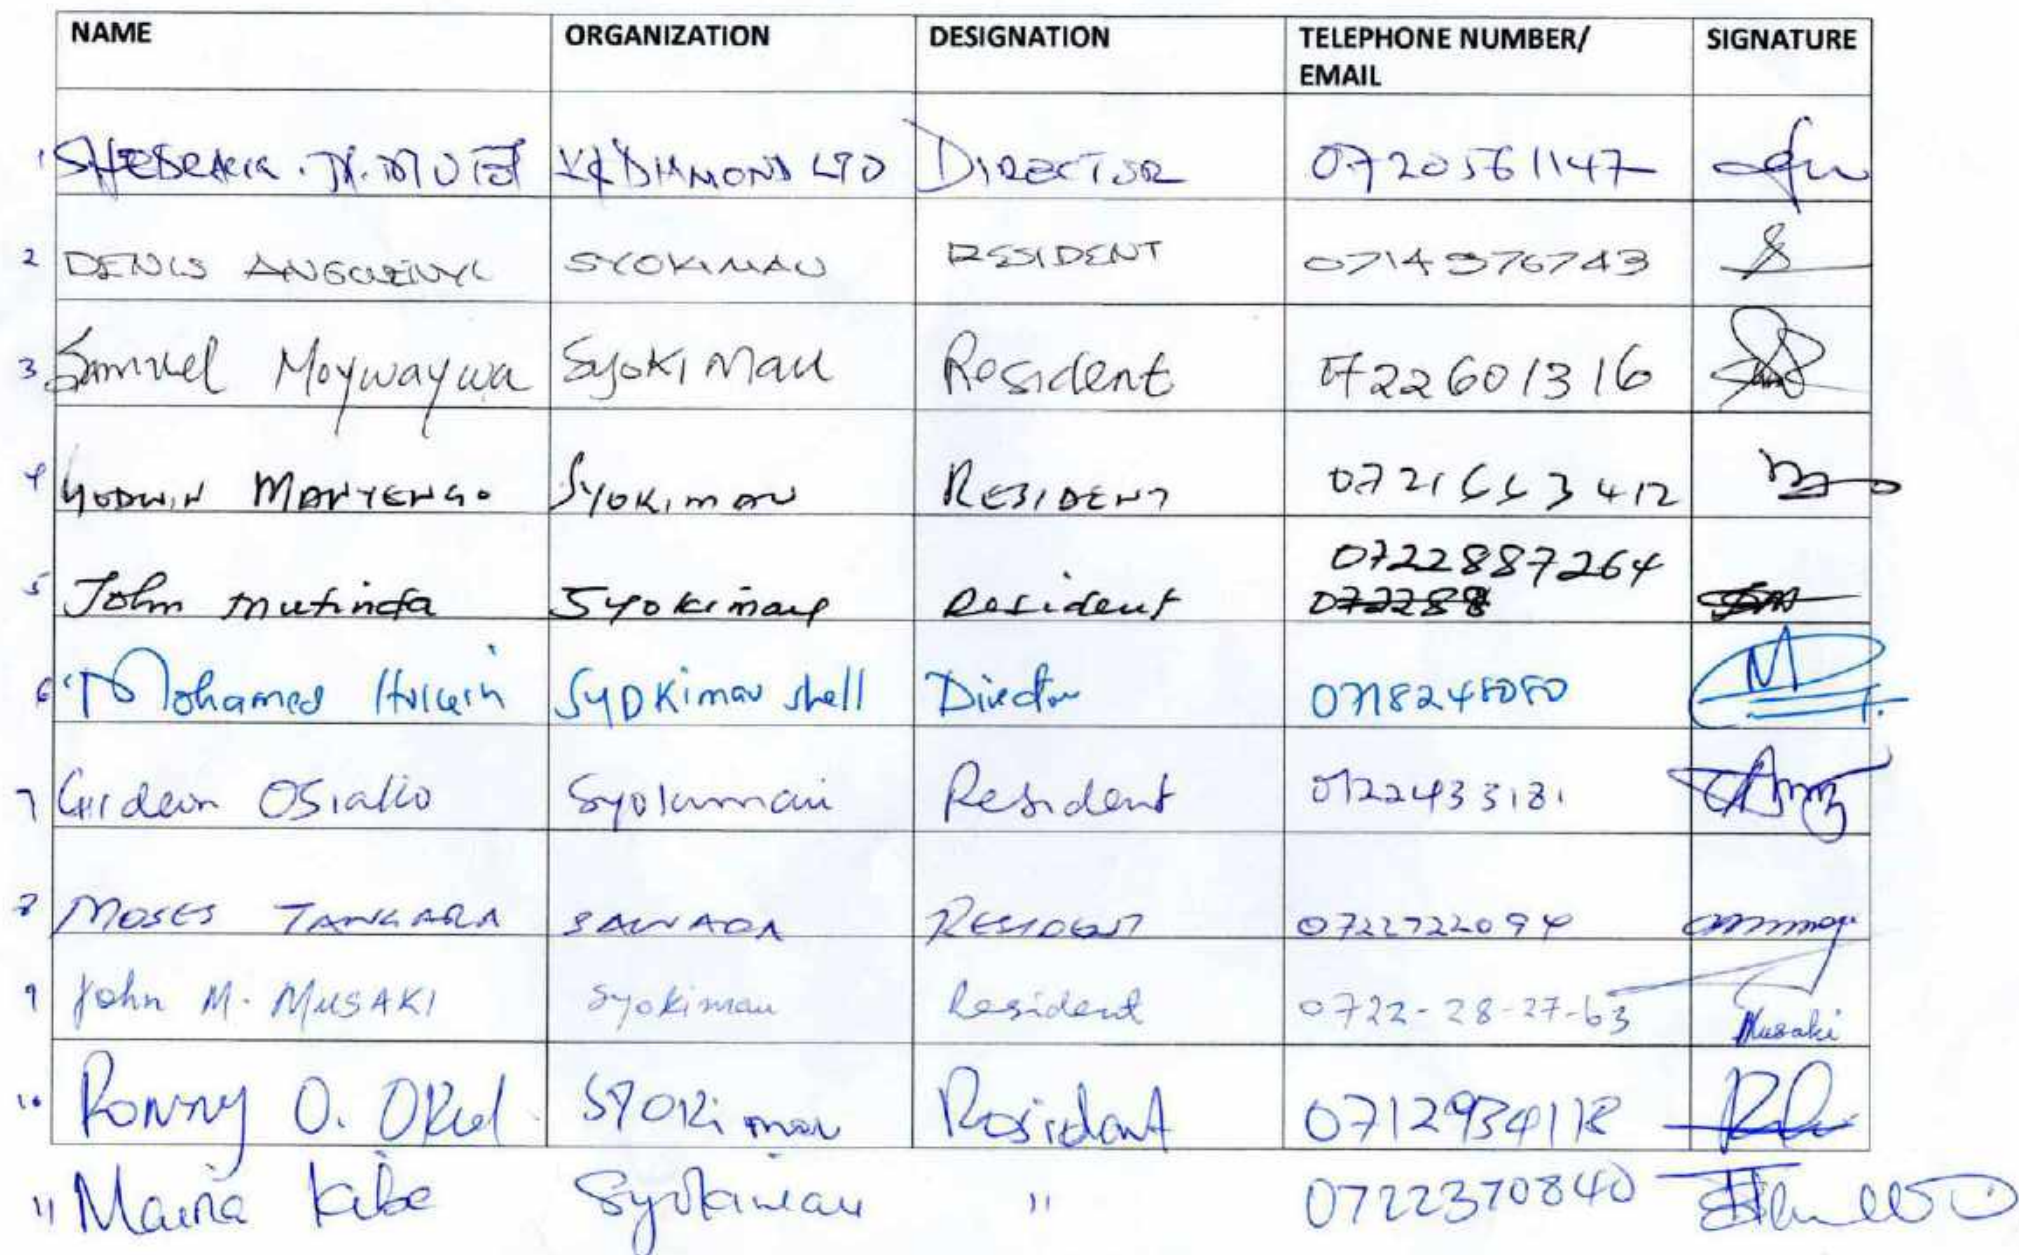 NAME ORGANIZATION DESIGNATION TELEPHONE NUMBER/ SIGNATURE
EMAIL
1 DIAMOND LTD DIRECTOR 0720561147
2 DENIS SYOKIMAU RESIDENT 0714376743
3 Samuel Moywaywa Syokimau Resident 0722601316
4 GODWIN MANYENGO SYOKIMAU RESIDENT 0721663412
0722887264
5 John Mutinda Syokimau Resident 072288
6 Mohamed Hussein Syokimau shell Director
7 Gideon Osiako Syokimau Resident 0722433181
8 MOSES TANGARA RESIDENT 0722722094
9 John M. MUSAKI Syokimau Resident 0722-28-27-63
Musaki
10 Ronny O. Okul Syokimau Resident
11 Maina Kibe Syokimau " 0722370840